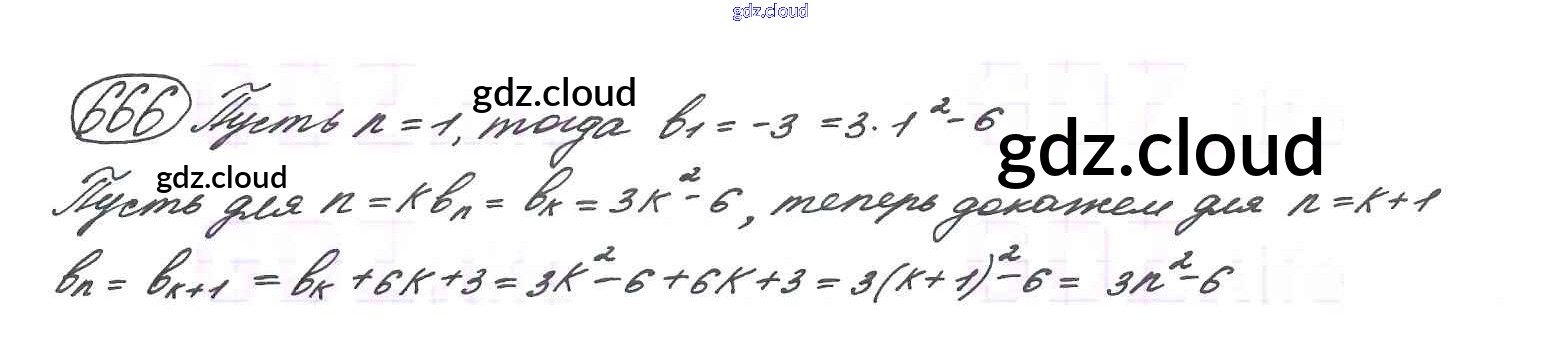 gdz.cloud
666 Пусть n = 1, тогда b₁ = -3 = 3·1² - 6
gdz.cloud
gdz.cloud
gdz.cloud
Пусть для n = k bₙ = bₖ = 3k² - 6, теперь докажем для n = k+1
bₙ = bₖ₊₁ = bₖ + 6k + 3 = 3k² - 6 + 6k + 3 = 3(k+1)² - 6 = 3n² - 6